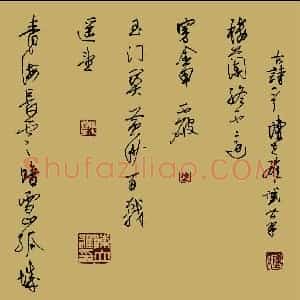 青海長雲暗雪山孤城
遥望
玉门関黄沙百戰
穿金甲不破
楼蘭終不還
古詩一首
Shufaziliao.com